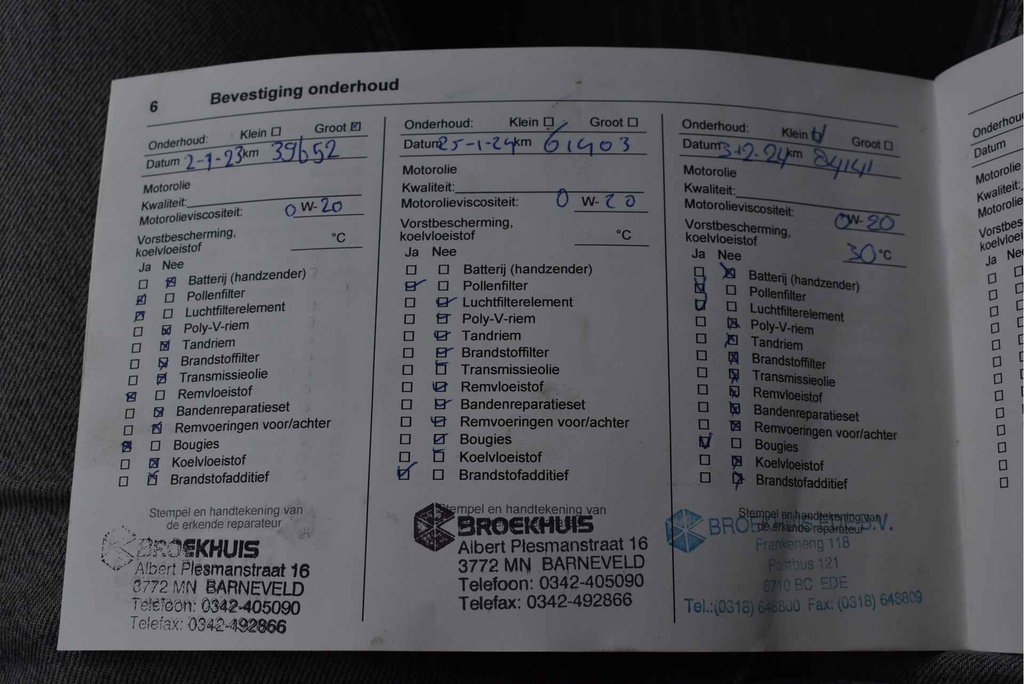 6 Bevestiging onderhoud
Onderhoud: Klein ☐ Groot ☒
Datum 2-7-23 km 39652
Motorolie
Kwaliteit:
Motorolieviscositeit: 0 W-20
Vorstbescherming,
koelvloeistof °C
Ja Nee
☐ ☒ Batterij (handzender)
☒ ☐ Pollenfilter
☒ ☐ Luchtfilterelement
☐ ☒ Poly-V-riem
☐ ☒ Tandriem
☐ ☒ Brandstoffilter
☐ ☒ Transmissieolie
☒ ☐ Remvloeistof
☐ ☒ Bandenreparatieset
☐ ☒ Remvoeringen voor/achter
☒ ☐ Bougies
☐ ☒ Koelvloeistof
☐ ☒ Brandstofadditief
Stempel en handtekening van
de erkende reparateur
BROEKHUIS
Albert Plesmanstraat 16
3772 MN BARNEVELD
Telefoon: 0342-405090
Telefax: 0342-492866
Onderhoud: Klein ☐ Groot ☐
Datum 25-1-24 km 61403
Motorolie
Kwaliteit:
Motorolieviscositeit: 0 W-20
Vorstbescherming,
koelvloeistof °C
Ja Nee
☐ ☐ Batterij (handzender)
☑ ☐ Pollenfilter
☐ ☑ Luchtfilterelement
☐ ☑ Poly-V-riem
☐ ☑ Tandriem
☐ ☑ Brandstoffilter
☐ ☐ Transmissieolie
☐ ☑ Remvloeistof
☐ ☑ Bandenreparatieset
☐ ☑ Remvoeringen voor/achter
☐ ☑ Bougies
☐ ☐ Koelvloeistof
☑ ☐ Brandstofadditief
Stempel en handtekening van
BROEKHUIS
Albert Plesmanstraat 16
3772 MN BARNEVELD
Telefoon: 0342-405090
Telefax: 0342-492866
Onderhoud: Klein ☑ Groot ☐
Datum 3-12-24 km 84141
Motorolie
Kwaliteit:
Motorolieviscositeit: 0W-20
Vorstbescherming,
koelvloeistof 30 °C
Ja Nee
☐ ☒ Batterij (handzender)
☑ ☐ Pollenfilter
☑ ☐ Luchtfilterelement
☐ ☒ Poly-V-riem
☐ ☒ Tandriem
☐ ☒ Brandstoffilter
☐ ☒ Transmissieolie
☐ ☒ Remvloeistof
☐ ☒ Bandenreparatieset
☐ ☒ Remvoeringen voor/achter
☑ ☐ Bougies
☐ ☒ Koelvloeistof
☐ ☒ Brandstofadditief
Stempel en handtekening van
de erkende reparateur
B.V.
Frankeneng 118
Postbus 121
6710 BC EDE
Tel.:(0318) 648800 Fax: (0318) 648809
Onderhoud
Datum
Motorolie
Kwaliteit:
Motorolie
Vorstbes
koelvloei
Ja Ne